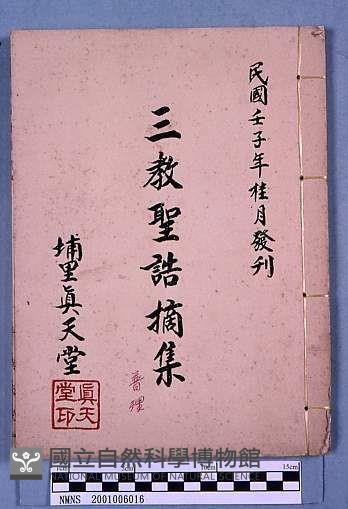 民國壬子年桂月發刋
三教聖誥摘集
埔里眞天堂
眞天堂印
國立自然科學博物館
NATIONAL MUSEUM OF NATURAL SCIENCE
10cm
15cm
NMNS 2001006016